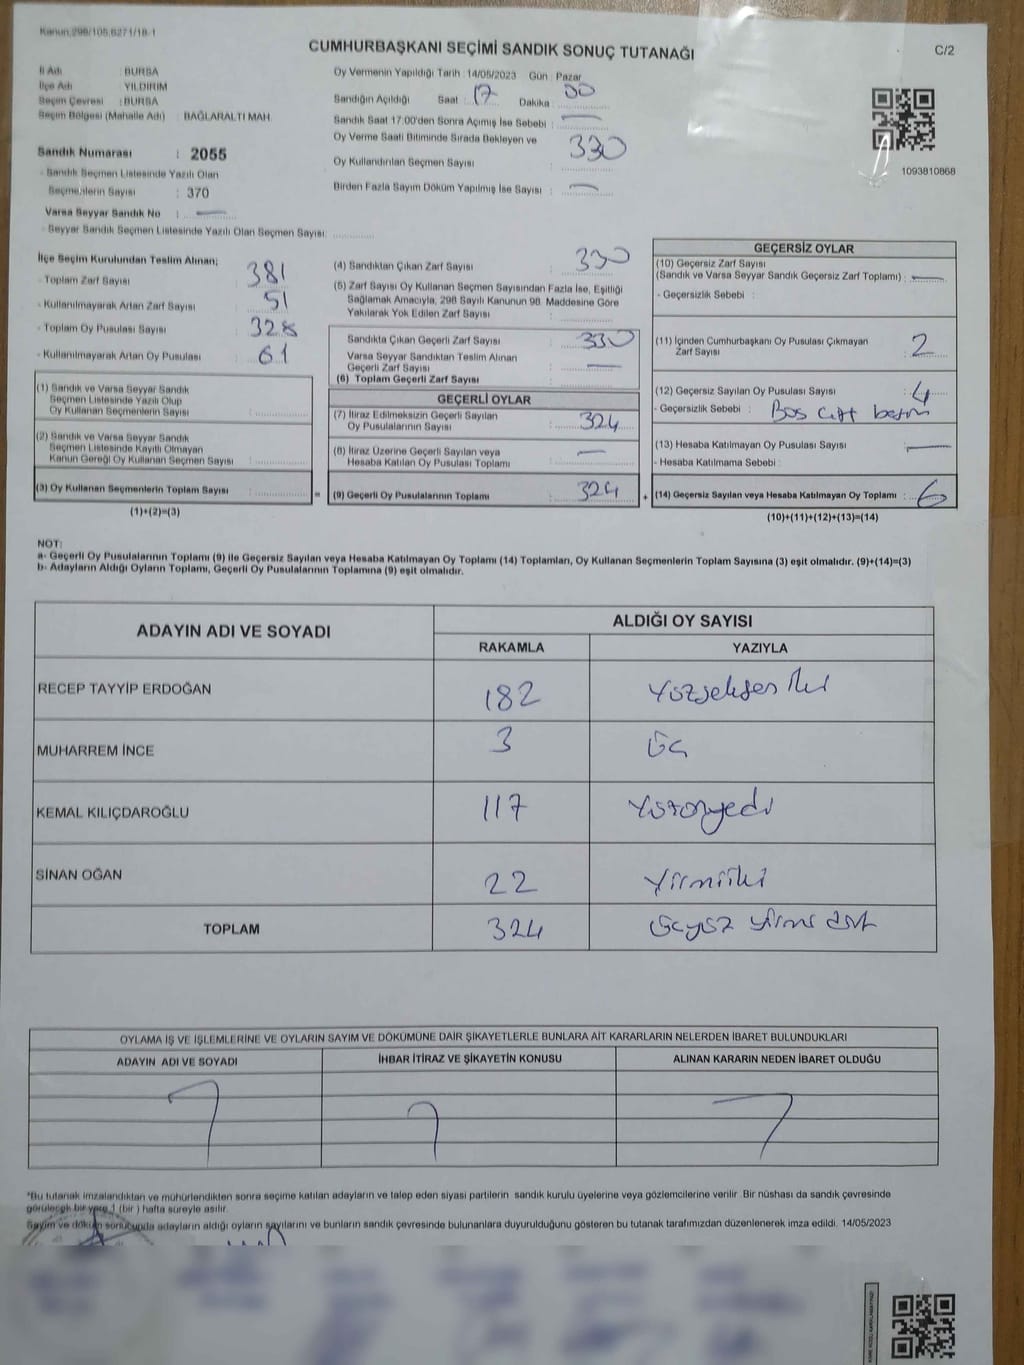 Kanun:298/105,6271/18-1
CUMHURBAŞKANI SEÇİMİ SANDIK SONUÇ TUTANAĞI
C/2
İl Adı : BURSA
İlçe Adı : YILDIRIM
Seçim Çevresi : BURSA
Seçim Bölgesi (Mahalle Adı) : BAĞLARALTI MAH.
Sandık Numarası : 2055
- Sandık Seçmen Listesinde Yazılı Olan
Seçmenlerin Sayısı : 370
Varsa Seyyar Sandık No : —
- Seyyar Sandık Seçmen Listesinde Yazılı Olan Seçmen Sayısı:
Oy Vermenin Yapıldığı Tarih : 14/05/2023 Gün : Pazar
Sandığın Açıldığı Saat : 17 Dakika : 00
Sandık Saat 17:00'den Sonra Açımış İse Sebebi : —
Oy Verme Saati Bitiminde Sırada Bekleyen ve
Oy Kullandırılan Seçmen Sayısı : 330
Birden Fazla Sayım Döküm Yapılmış İse Sayısı : —
1093810868
İlçe Seçim Kurulundan Teslim Alınan;
- Toplam Zarf Sayısı : 381
- Kullanılmayarak Artan Zarf Sayısı : 51
- Toplam Oy Pusulası Sayısı : 328
- Kullanılmayarak Artan Oy Pusulası : 61
(1) Sandık ve Varsa Seyyar Sandık
Seçmen Listesinde Yazılı Olup
Oy Kullanan Seçmenlerin Sayısı :
(2) Sandık ve Varsa Seyyar Sandık
Seçmen Listesinde Kayıtlı Olmayan
Kanun Gereği Oy Kullanan Seçmen Sayısı :
(3) Oy Kullanan Seçmenlerin Toplam Sayısı : =
(1)+(2)=(3)
(4) Sandıktan Çıkan Zarf Sayısı : 330
(5) Zarf Sayısı Oy Kullanan Seçmen Sayısından Fazla İse, Eşitliği
Sağlamak Amacıyla, 298 Sayılı Kanunun 98. Maddesine Göre
Yakılarak Yok Edilen Zarf Sayısı :
Sandıkta Çıkan Geçerli Zarf Sayısı : 330
Varsa Seyyar Sandıktan Teslim Alınan
Geçerli Zarf Sayısı : —
(6) Toplam Geçerli Zarf Sayısı :
GEÇERLİ OYLAR
(7) İtiraz Edilmeksizin Geçerli Sayılan
Oy Pusulalarının Sayısı : 324
(8) İtiraz Üzerine Geçerli Sayılan veya
Hesaba Katılan Oy Pusulası Toplamı : —
(9) Geçerli Oy Pusulalarının Toplamı : 324 +
GEÇERSİZ OYLAR
(10) Geçersiz Zarf Sayısı
(Sandık ve Varsa Seyyar Sandık Geçersiz Zarf Toplamı) : —
- Geçersizlik Sebebi :
(11) İçinden Cumhurbaşkanı Oy Pusulası Çıkmayan
Zarf Sayısı : 2
(12) Geçersiz Sayılan Oy Pusulası Sayısı : 4
- Geçersizlik Sebebi : Boş çift
(13) Hesaba Katılmayan Oy Pusulası Sayısı : —
- Hesaba Katılmama Sebebi :
(14) Geçersiz Sayılan veya Hesaba Katılmayan Oy Toplamı : 6
(10)+(11)+(12)+(13)=(14)
NOT:
a- Geçerli Oy Pusulalarının Toplamı (9) ile Geçersiz Sayılan veya Hesaba Katılmayan Oy Toplamı (14) Toplamları, Oy Kullanan Seçmenlerin Toplam Sayısına (3) eşit olmalıdır. (9)+(14)=(3)
b- Adayların Aldığı Oyların Toplamı, Geçerli Oy Pusulalarının Toplamına (9) eşit olmalıdır.
ADAYIN ADI VE SOYADI
ALDIĞI OY SAYISI
RAKAMLA YAZIYLA
RECEP TAYYİP ERDOĞAN 182 Yüzseksen iki
MUHARREM İNCE 3 Üç
KEMAL KILIÇDAROĞLU 117 Yüzonyedi
SİNAN OĞAN 22 Yirmiiki
TOPLAM 324 Üçyüz yirmi dört
OYLAMA İŞ VE İŞLEMLERİNE VE OYLARIN SAYIM VE DÖKÜMÜNE DAİR ŞİKAYETLERLE BUNLARA AİT KARARLARIN NELERDEN İBARET BULUNDUKLARI
ADAYIN ADI VE SOYADI İHBAR İTİRAZ VE ŞİKAYETİN KONUSU ALINAN KARARIN NEDEN İBARET OLDUĞU
*Bu tutanak imzalandıktan ve mühürlendikten sonra seçime katılan adayların ve talep eden siyasi partilerin sandık kurulu üyelerine veya gözlemcilerine verilir. Bir nüshası da sandık çevresinde
görülecek bir yere 1 (bir ) hafta süreyle asılır.
Sayım ve döküm sonucunda adayların aldığı oyların sayılarını ve bunların sandık çevresinde bulunanlara duyurulduğunu gösteren bu tutanak tarafımızdan düzenlenerek imza edildi. 14/05/2023